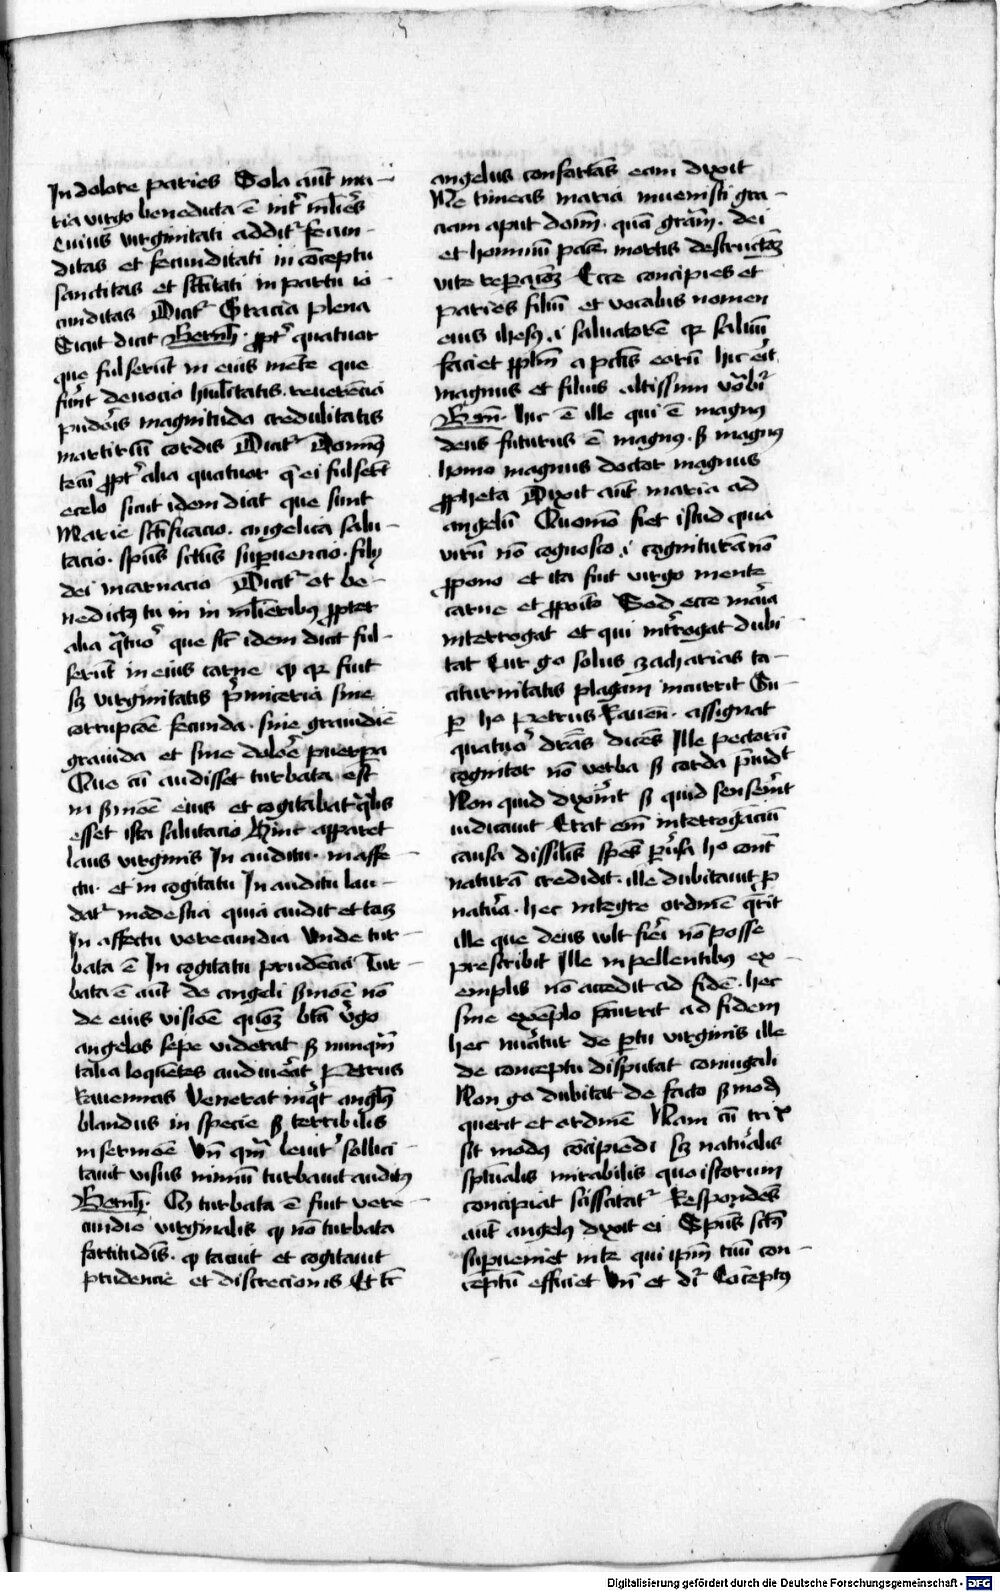 In dolore paries Sola aūt ma-
ria virgo benedicta ē int̄ mlīes
Cuius virginitati addit᷑ fecun-
ditas et fecunditati in cōceptu
sanctitas et sc̄titati in partu io-
cunditas Dicit᷑ Gracia plena
Sicut dicit Bernh̄. ꝓpt᷑ quatuor
que fulserūt in eius mēte que
fūnt deuocio hūilitatis. reuerēcia
pudōis magnitudo credulitatis
martiriū cordis Dicit᷑ Domin9
tecū ꝓpt᷑ alia quatuor q̄ ei fulserūt
e celo sicut idem dicit que sunt
Marie sc̄ificacio. angelica salu-
tacio. spūs sc̄tus suꝑuencio. filij
dei incarnacio Dicit᷑ et be-
nedicta tu in in mlieribꝫ ꝓpter
alia q̄tuor que sic̄ idem dicit ful-
serūt in eius carne ꝙ ꝙ fuit
sꝫ virginitatis p̄miceria sine
corrupcōe fecunda. sine grauidīe
grauida et sine dolōe puerpa
Que cū audisset turbata est
in s̄mōe eius et cogitabat q̄lis
esset ista salutacio Hinc apparet
laus virginis In auditu. in affe-
ctu. et in cogitatu In auditu lau-
dat᷑ modestia quia audit et tacꝫ
In affectu verecundia Unde tur-
bata ē In cogitatu prudēcia Tur-
bata ē aūt de angeli s̄mōe nō
de eius visiōe quoꝫ bt̄a v̄go
angelos sepe viderat sꝫ nunqm̄
talia loquētes audiuēat Petrus
Rauennas Venerat inq̄t angl̄s
blandus in specie sꝫ terribilis
in sermōe Vn̄ qm̄ leuit᷑ sollici-
tauit visus nimiū turbauit auditꝫ
Bernh̄. Qꝫ turbata ē fuit vere-
cundie virginalis ꝙ nō turbata
fortitudīs. ꝙ tacuit et cogitauit
prudencie et discrecionis Et tc̄
angelus confortās eam dixit
Ne timeas maria inuenisti gra-
ciam aput deūm. quā grām. dei
et hominū pacē mortis destructōꝫ
vite reꝑacōꝫ Ecce concipies et
paries filiū et vocabis nomen
eius ihesꝫ .i. saluatorē ꝙ saluū
faciet ꝓplm̄ a pctīs eorū hic erit
magnus et filius altissimi v̄bi᷑
Bern̄. hic ē ille qui ē magnꝫ
deus futurus ē magnꝫ. sꝫ magnꝫ
homo magnus doctor magnus
ꝓpheta Dixit aūt maria ad
angelū Quomō fiet istud quia
virū nō cognosco .i. cogniturā nō
ꝓpono et ita fuit virgo mente
carne et ꝓposito Sed ecce maria
interrogat et qui int̄rogat dubi-
tat Cur go solus zacharias ta-
citurnitatis plagam incurrit Su-
ꝑ ho Petrus Rauen̄. assignat
quatuor drās dicēs Ille pectorū
cognitor nō verba sꝫ corda p̄uidt
Non quid dixerīt sꝫ quid senserīt
iudicauit Erat em̄ interrogāciū
causa dissilīs spēs ꝑuersa ho cont̄
naturā credidit. ille dubitauit ꝑ
natura. hec integre ordinē q̄rit
ille que deus vult fieri nō posse
prescribit Ille inpellentibꝫ ex-
emplis nō accedit ad fidē. hec
sine exēplo currit ad fidem
hec mirātur de ꝑtu virginis ille
de conceptu disputat coniugali
Non go dubitat de facto sꝫ modꝫ
querit et ordinē Nam cū trix
sit modꝫ cōcipiēdi sꝫ natūalis
spūalis mirabilis quo istorum
concipiat sciscitat᷑ Respondēs
aūt angelꝫ dixit ei Spūs sctūs
suꝑueniet in te qui ipm̄ tuū con-
ceptū efficiet Vn̄ et dr̄ Cōceptꝫ